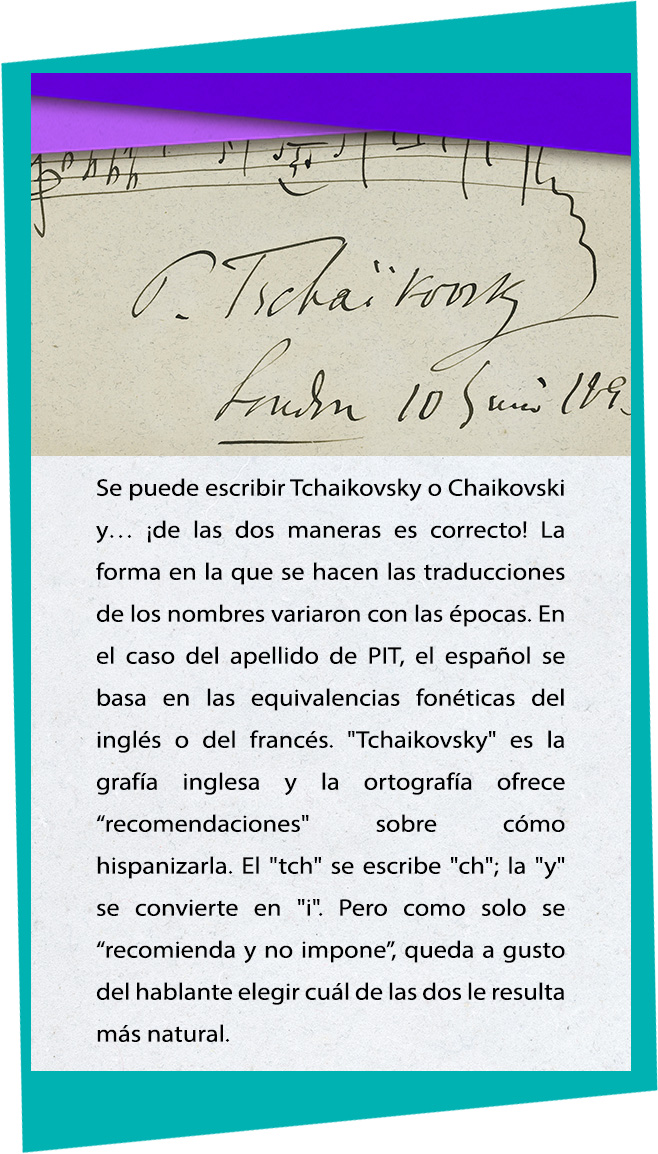 P. Tschaïkovsky
London 10
Se puede escribir Tchaikovsky o Chaikovski
y… ¡de las dos maneras es correcto! La
forma en la que se hacen las traducciones
de los nombres variaron con las épocas. En
el caso del apellido de PIT, el español se
basa en las equivalencias fonéticas del
inglés o del francés. "Tchaikovsky" es la
grafía inglesa y la ortografía ofrece
“recomendaciones" sobre cómo
hispanizarla. El "tch" se escribe "ch"; la "y"
se convierte en "i". Pero como solo se
“recomienda y no impone”, queda a gusto
del hablante elegir cuál de las dos le resulta
más natural.